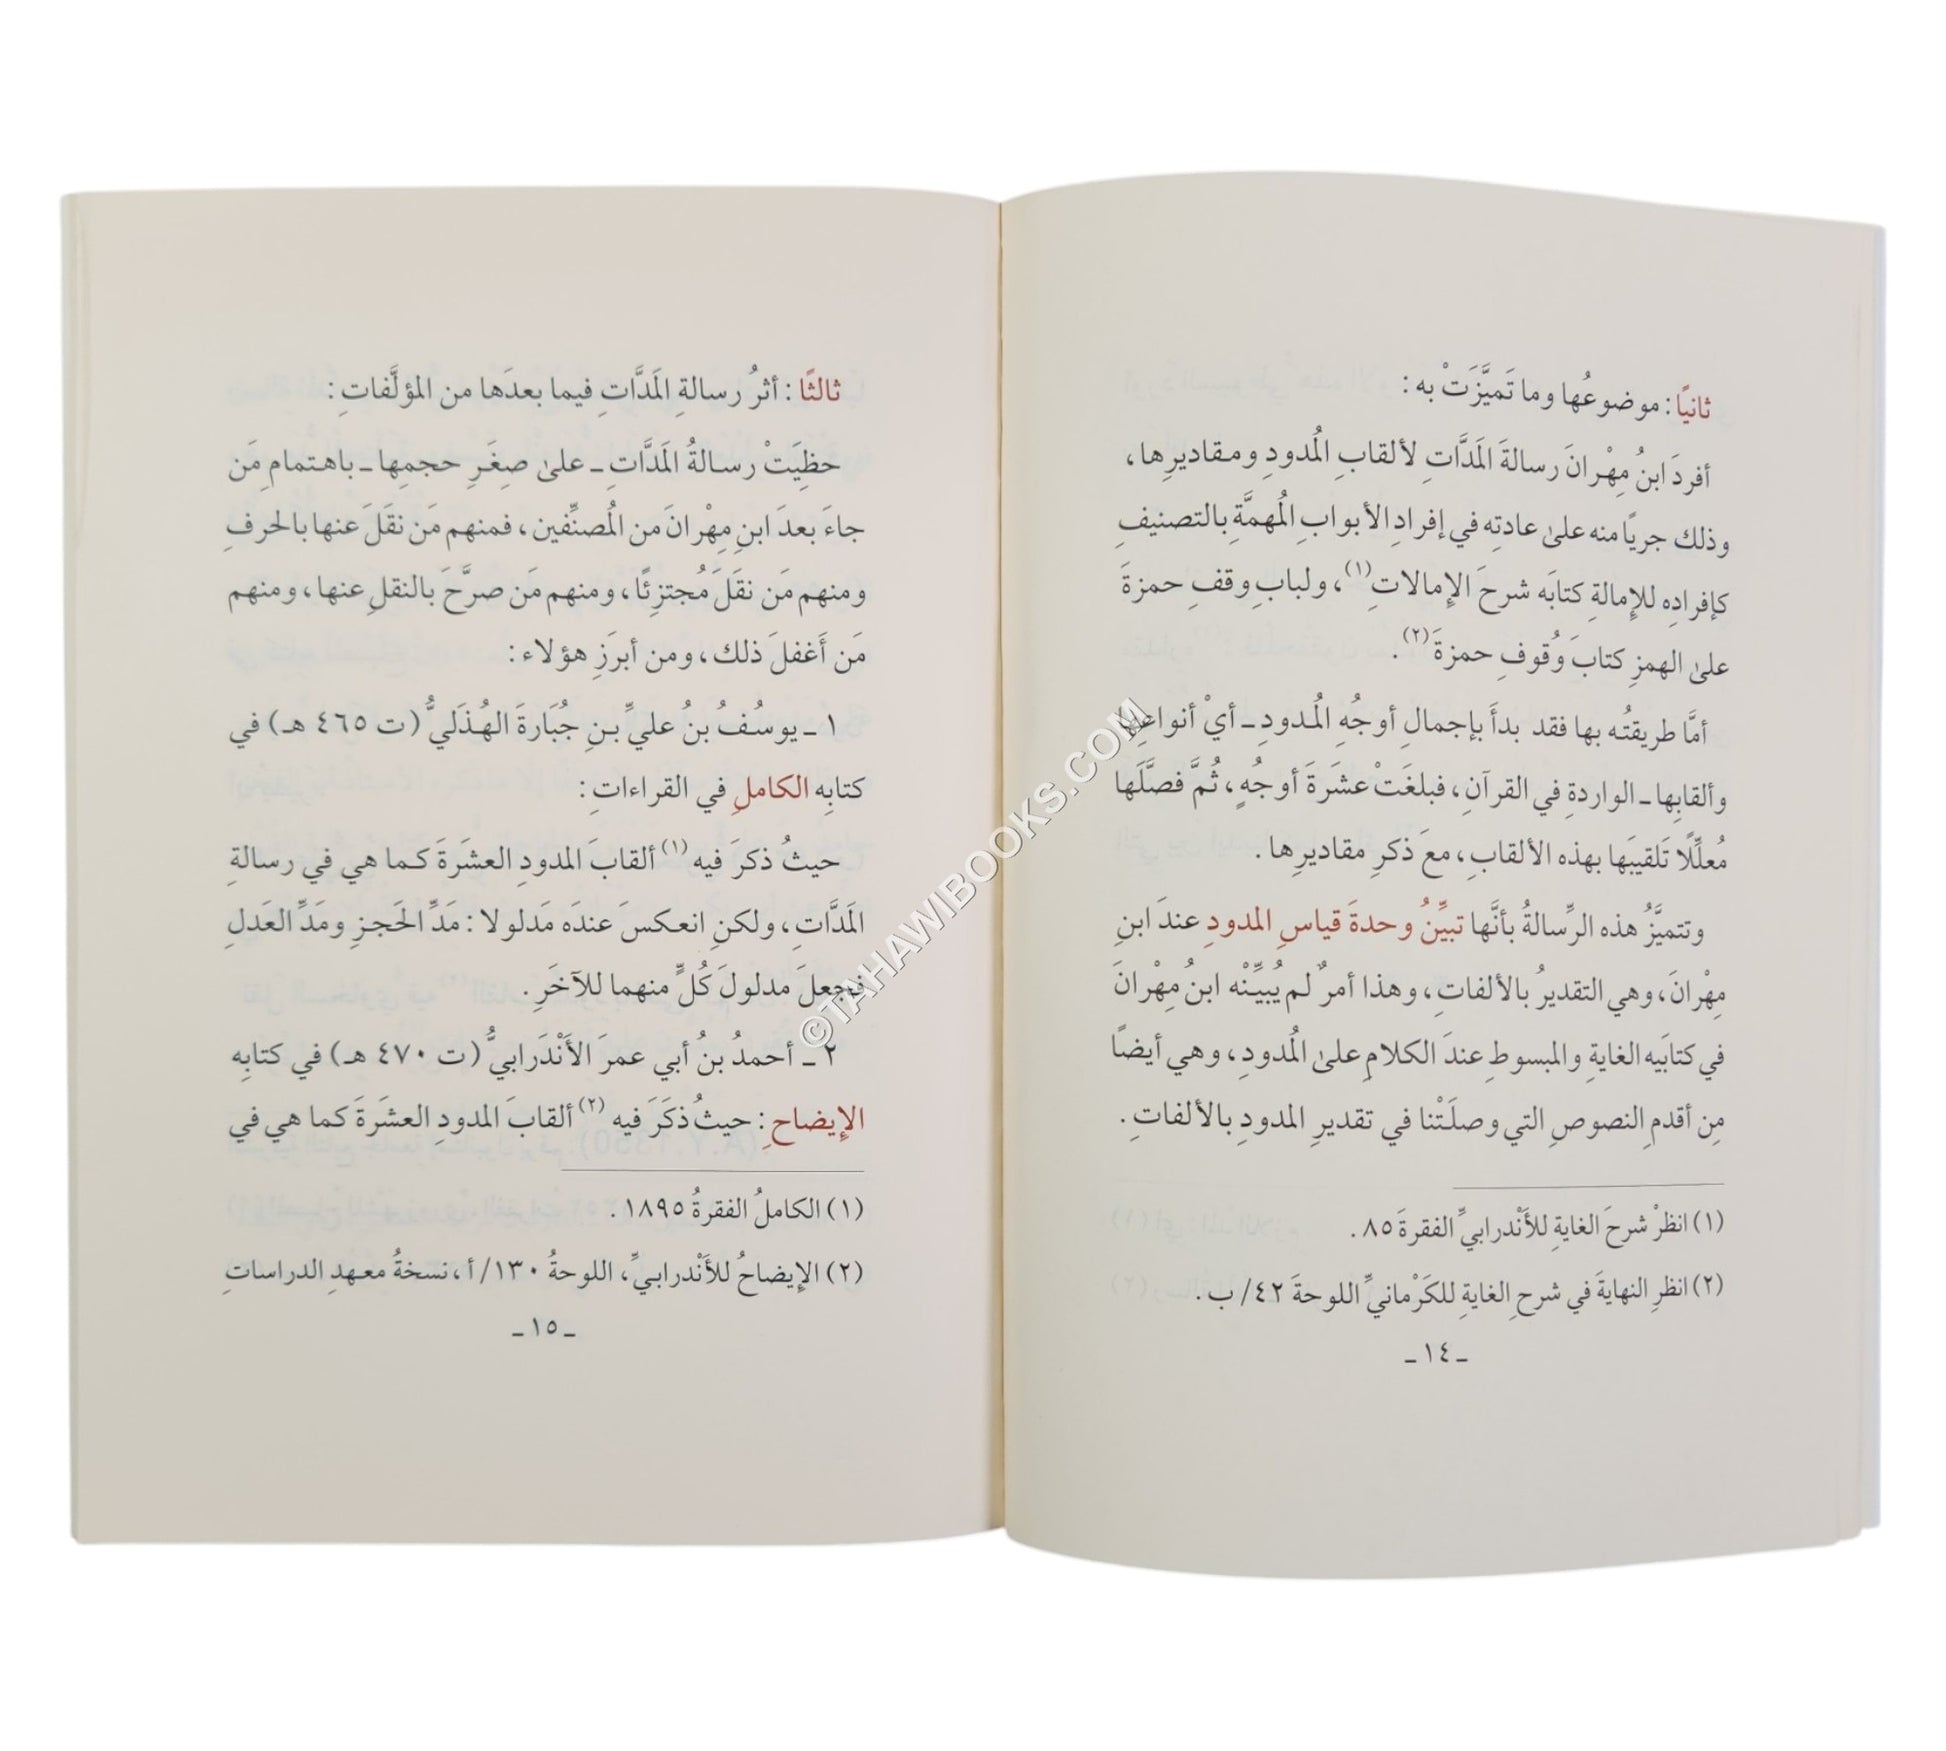 ثانيًا: موضوعُها وما تَميَّزَتْ به:
أفردَ ابنُ مِهْرانَ رسالةَ المَدَّاتِ لألقابِ المُدودِ ومقاديرِها،
وذلك جريًا منه على عادتِه في إفرادِ الأبوابِ المُهمَّةِ بالتصنيفِ
كإفرادِه للإمالةِ كتابَه شرحَ الإمالاتِ(١)، ولبابِ وقفِ حمزةَ
على الهمزِ كتابَ وُقوفِ حمزةَ(٢).
أمَّا طريقتُه بها فقد بدأَ بإجمالِ أوجُهِ المُدودِ ـ أيْ أنواعِها
وألقابِها ـ الواردةِ في القرآنِ، فبلغَتْ عشَرةَ أوجُهٍ، ثُمَّ فصَّلَها
مُعلِّلًا تَلقيبَها بهذه الألقابِ، معَ ذكرِ مقاديرِها.
وتتميَّزُ هذه الرِّسالةُ بأنَّها تبيِّنُ وحدةَ قياسِ المدودِ عندَ ابنِ
مِهْرانَ، وهي التقديرُ بالألفاتِ، وهذا أمرٌ لم يُبيِّنْه ابنُ مِهْرانَ
في كتابَيه الغايةِ والمبسوطِ عندَ الكلامِ على المُدودِ، وهي أيضاً
مِن أقدمِ النصوصِ التي وصلَتْنا في تقديرِ المدودِ بالألفاتِ.
(١) انظرْ شرحَ الغايةِ للأَنْدرابيِّ الفقرةَ ٨٥.
(٢) انظرِ النهايةَ في شرحِ الغايةِ للكَرْمانيِّ اللوحةَ ٤٢/ ب.
ـ ١٤ ـ
ثالثًا: أثرُ رسالةِ المَدَّاتِ فيما بعدَها من المؤلَّفاتِ:
حظِيَتْ رسالةُ المَدَّاتِ ـ على صِغَرِ حجمِها ـ باهتمامِ مَن
جاءَ بعدَ ابنِ مِهْرانَ من المُصنِّفين، فمنهم مَن نقَلَ عنها بالحرفِ
ومنهم مَن نقَلَ مُجتزِئًا، ومنهم مَن صرَّحَ بالنقلِ عنها، ومنهم
مَن أَغفلَ ذلك، ومن أبرَزِ هؤلاء:
١ ـ يوسُفُ بنُ عليِّ بنِ جُبَارةَ الهُذَليُّ (ت ٤٦٥ هـ) في
كتابِه الكاملِ في القراءاتِ:
حيثُ ذكرَ فيه(١) ألقابَ المدودِ العشَرةَ كما هي في رسالةِ
المَدَّاتِ، ولكنِ انعكسَ عندَه مَدلولا: مَدِّ الحَجزِ ومَدِّ العَدلِ
فجعلَ مدلولَ كُلٍّ منهما للآخَرِ.
٢ ـ أحمدُ بنُ أبي عمرَ الأَنْدَرابيُّ (ت ٤٧٠ هـ) في كتابِه
الإيضاحِ: حيثُ ذكَرَ فيه(٢) ألقابَ المدودِ العشَرةَ كما هي في
(١) الكاملُ الفقرةُ ١٨٩٥.
(٢) الإيضاحُ للأَنْدرابيِّ، اللوحةُ ١٣٠/ أ، نسخةُ معهدِ الدراساتِ
ـ ١٥ ـ
©TAHAWIBOOKS.COM